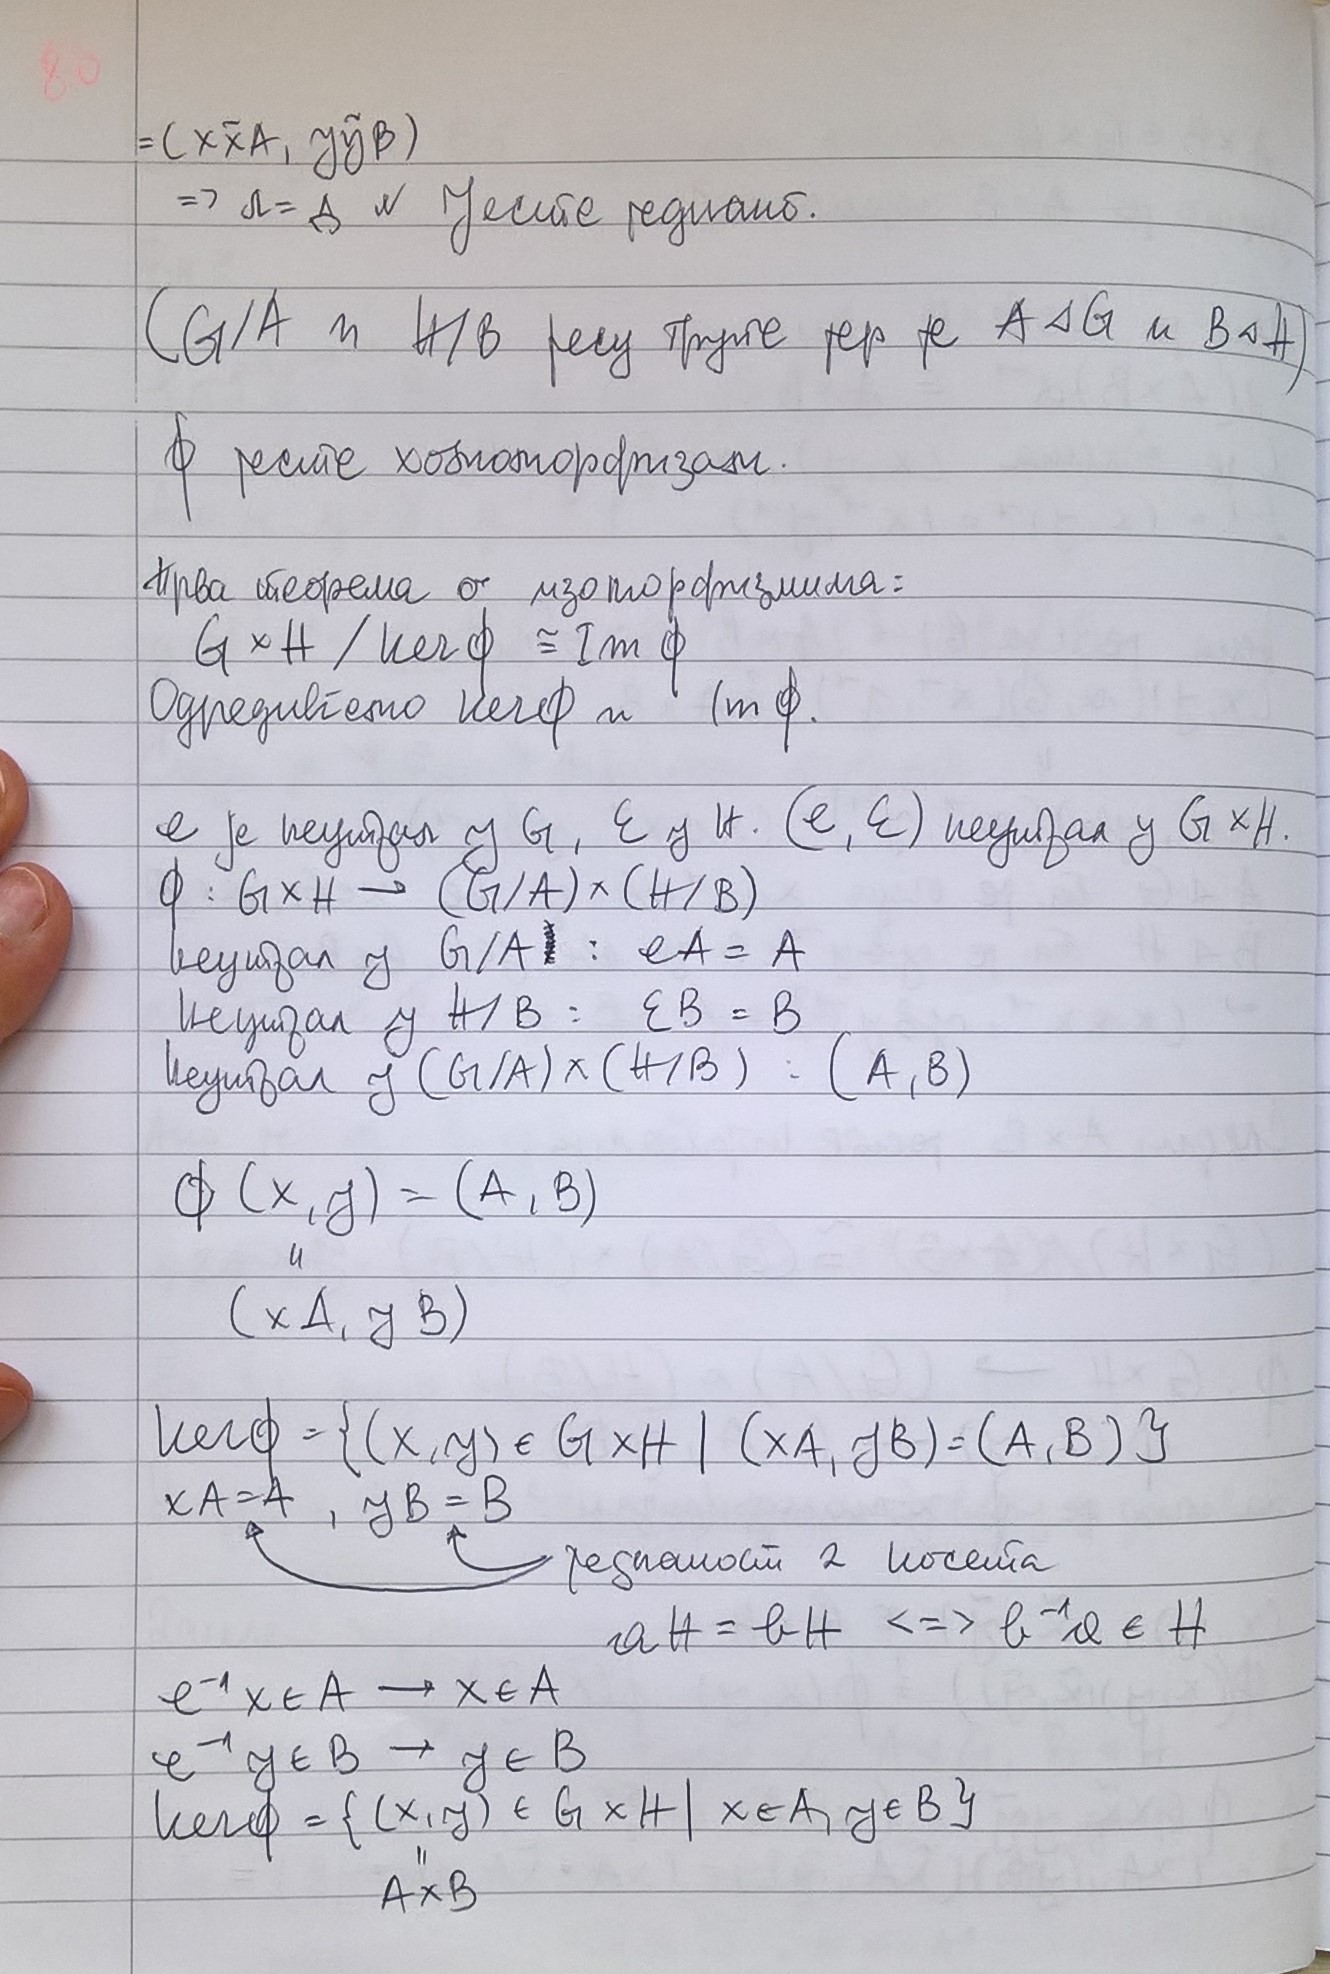 80
=(xx̃A, yỹB)
=> Л=Д и јесте једнакост.
(G/A и H/B јесу групе јер је A⊲G и B⊲H)
ϕ јесте хомоморфизам.
Прва теорема о изоморфизмима:
G×H / Ker ϕ ≅ Im ϕ
Одредићемо Ker ϕ и Im ϕ.
e је неутрал у G, ε у H. (e, ε) неутрал у G×H.
ϕ : G×H → (G/A)×(H/B)
неутрал у G/A : eA = A
неутрал у H/B : εB = B
неутрал у (G/A)×(H/B) : (A, B)
ϕ(x, y) = (A, B)
"
(xA, yB)
Ker ϕ = {(x, y) ∈ G×H | (xA, yB) = (A, B)}
xA = A , yB = B
једнакост 2 косета
aH = bH <=> b⁻¹a ∈ H
e⁻¹x ∈ A → x ∈ A
e⁻¹y ∈ B → y ∈ B
Ker ϕ = {(x, y) ∈ G×H | x ∈ A, y ∈ B}
"
A×B